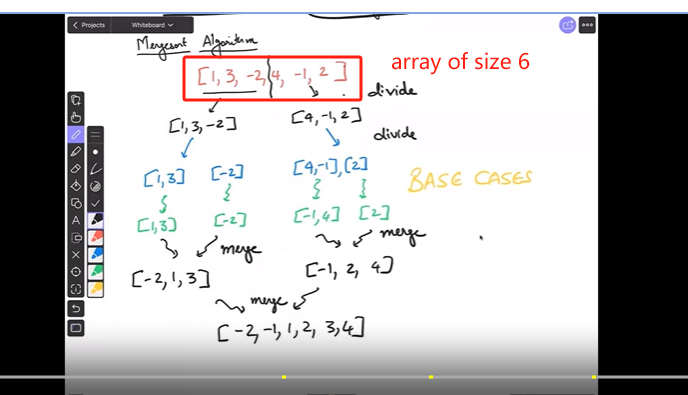 Projects Whiteboard
Mergesort Algorithm
[1, 3, -2, 4, -1, 2] array of size 6
divide
[1, 3, -2] [4, -1, 2]
divide
[1, 3] [-2] [4, -1], [2]
BASE CASES
[1, 3] [-2] [-1, 4] [2]
merge merge
[-2, 1, 3] [-1, 2, 4]
merge
[-2, -1, 1, 2, 3, 4]